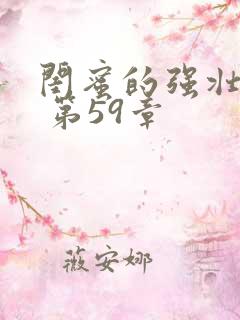 閨蜜的强壮
第59章
薇安娜